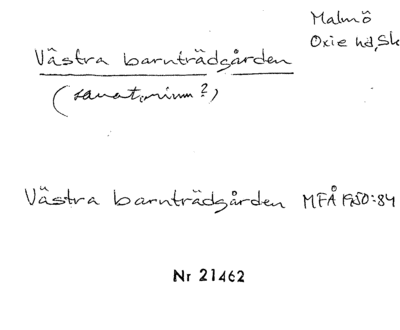 Malmö
Oxie hd, Sk
Västra barnträdgården
(sanatorium?)
Västra barnträdgården MFÅ 1950:84
Nr 21462